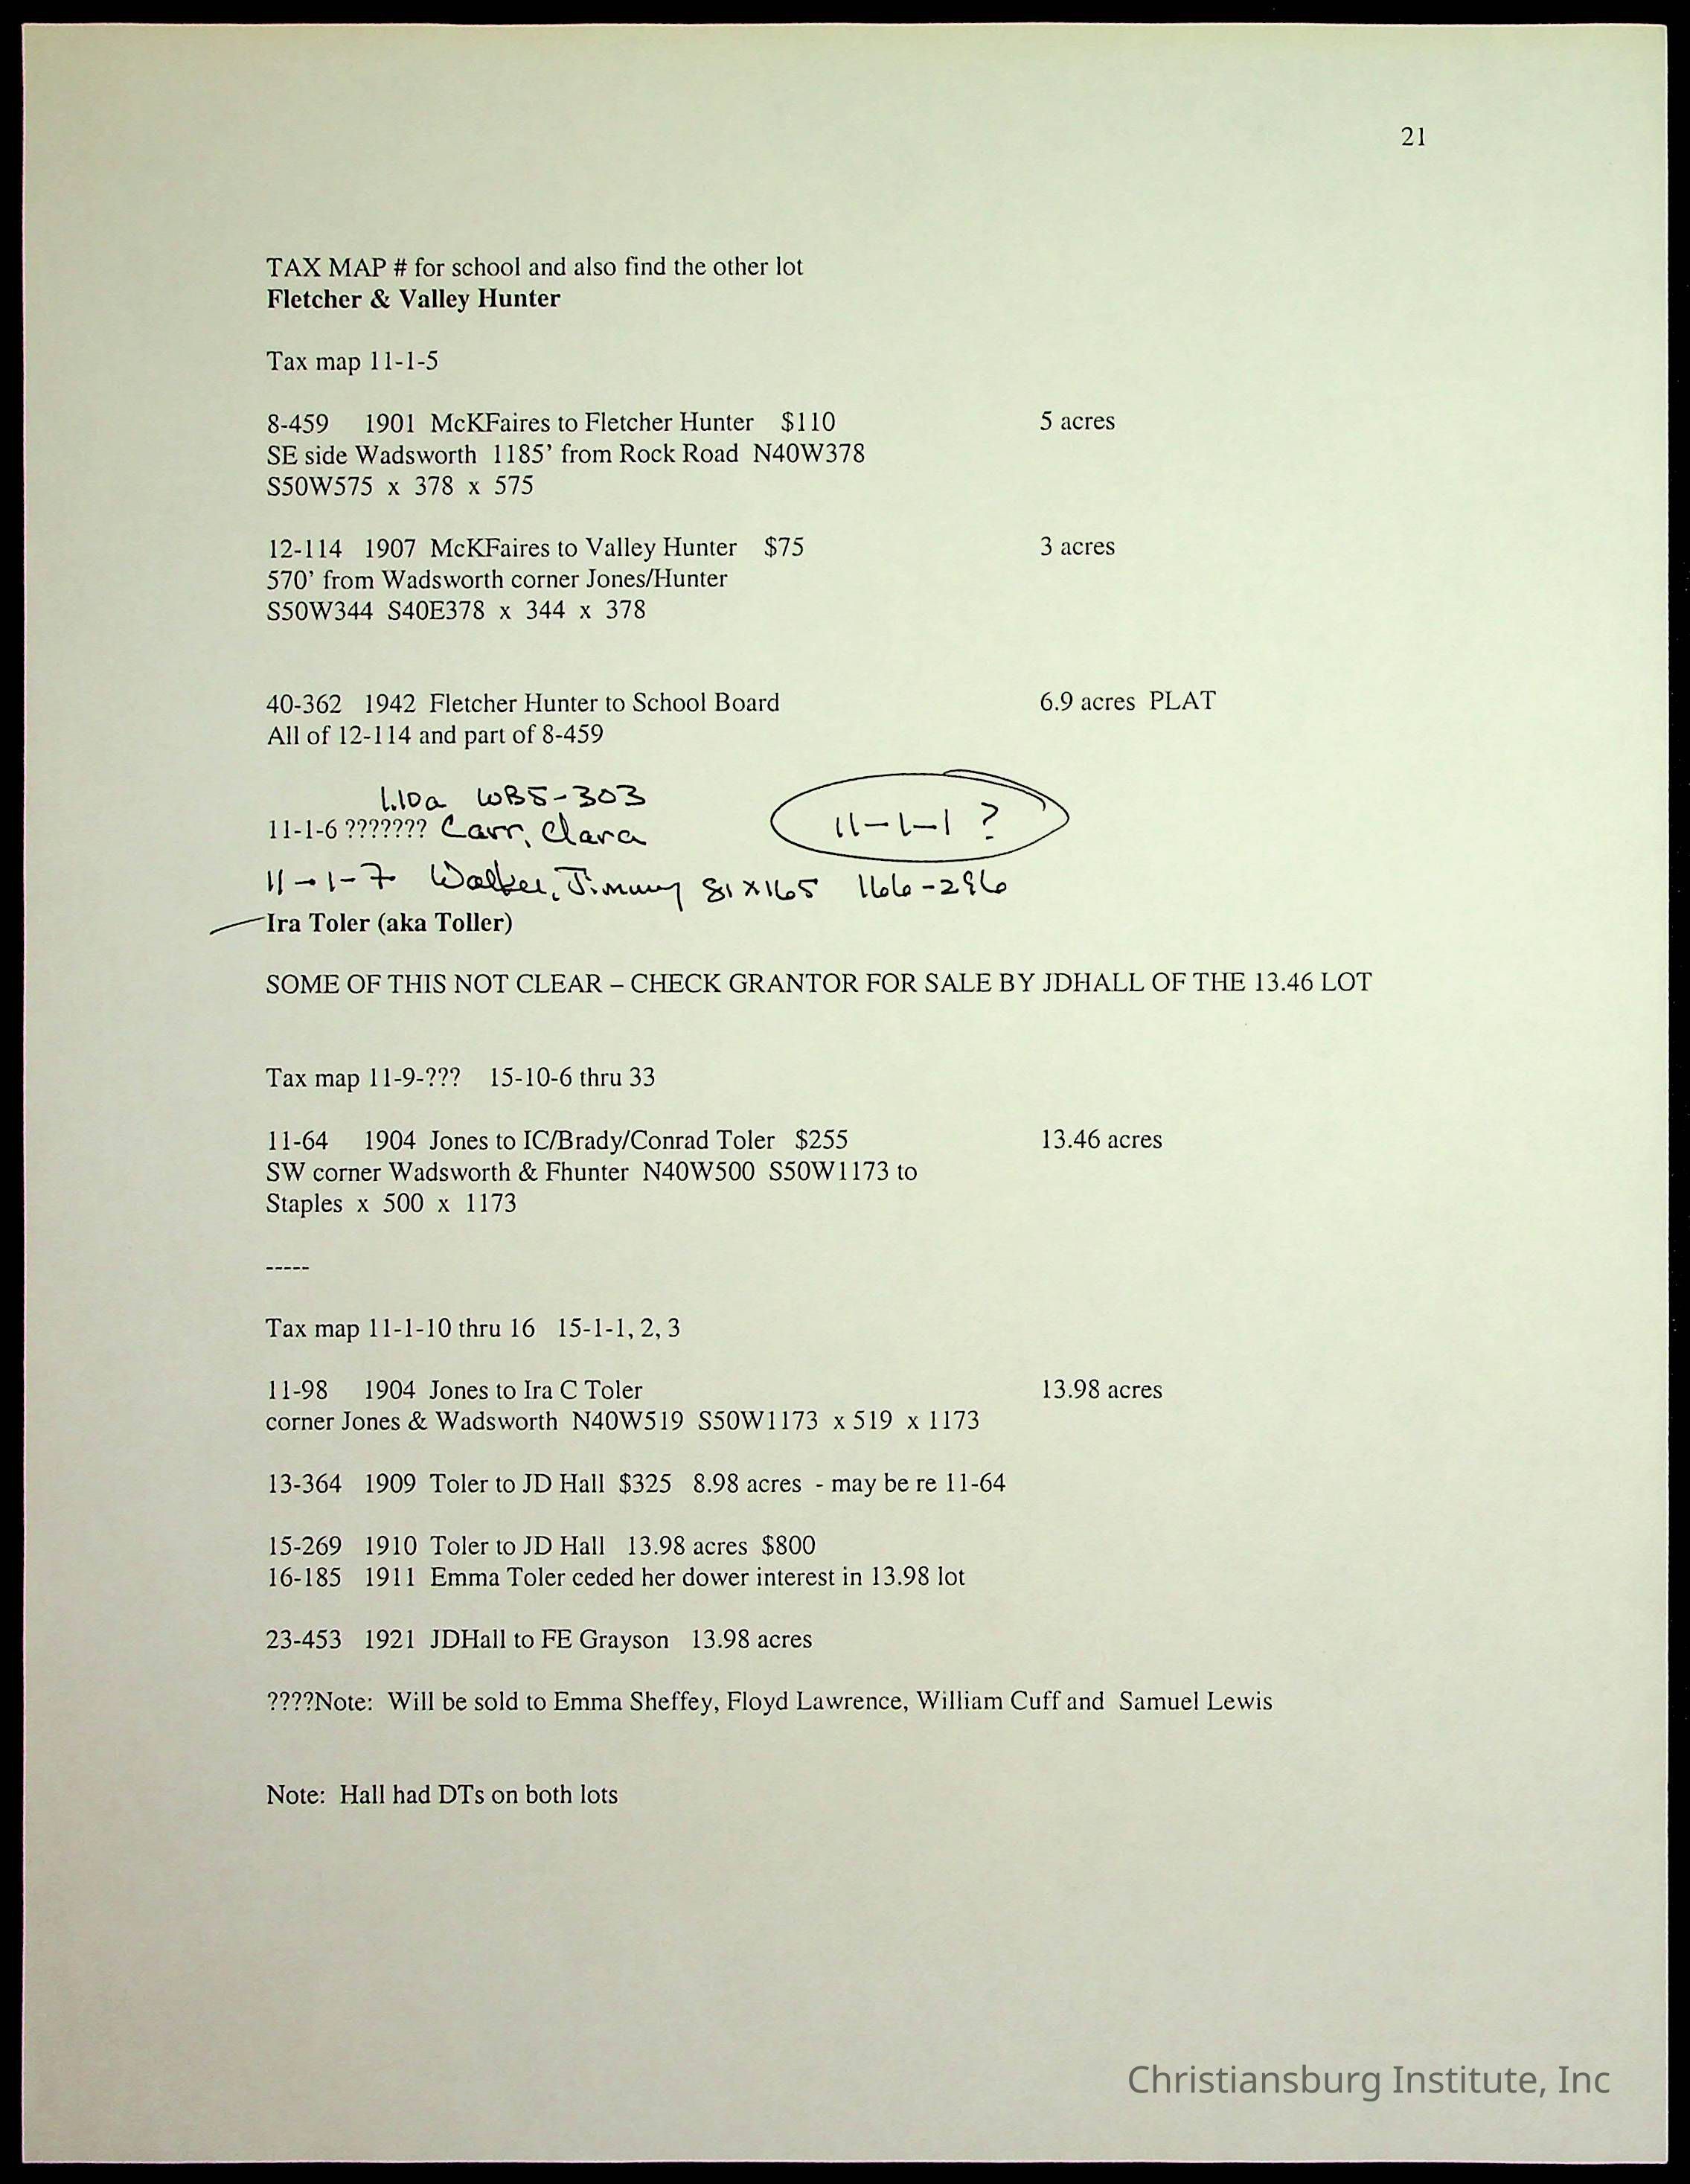 21
TAX MAP # for school and also find the other lot
Fletcher & Valley Hunter
Tax map 11-1-5
8-459 1901 McKFaires to Fletcher Hunter $110 5 acres
SE side Wadsworth 1185’ from Rock Road N40W378
S50W575 x 378 x 575
12-114 1907 McKFaires to Valley Hunter $75 3 acres
570’ from Wadsworth corner Jones/Hunter
S50W344 S40E378 x 344 x 378
40-362 1942 Fletcher Hunter to School Board 6.9 acres PLAT
All of 12-114 and part of 8-459
1.10a WB5-303
11-1-6 ??????? Carr, Clara 11-1-1 ?
11-1-7 Walker, Jimmy 81x165 166-296
Ira Toler (aka Toller)
SOME OF THIS NOT CLEAR – CHECK GRANTOR FOR SALE BY JDHALL OF THE 13.46 LOT
Tax map 11-9-??? 15-10-6 thru 33
11-64 1904 Jones to IC/Brady/Conrad Toler $255 13.46 acres
SW corner Wadsworth & Fhunter N40W500 S50W1173 to
Staples x 500 x 1173
-----
Tax map 11-1-10 thru 16 15-1-1, 2, 3
11-98 1904 Jones to Ira C Toler 13.98 acres
corner Jones & Wadsworth N40W519 S50W1173 x 519 x 1173
13-364 1909 Toler to JD Hall $325 8.98 acres - may be re 11-64
15-269 1910 Toler to JD Hall 13.98 acres $800
16-185 1911 Emma Toler ceded her dower interest in 13.98 lot
23-453 1921 JDHall to FE Grayson 13.98 acres
????Note: Will be sold to Emma Sheffey, Floyd Lawrence, William Cuff and Samuel Lewis
Note: Hall had DTs on both lots
Christiansburg Institute, Inc